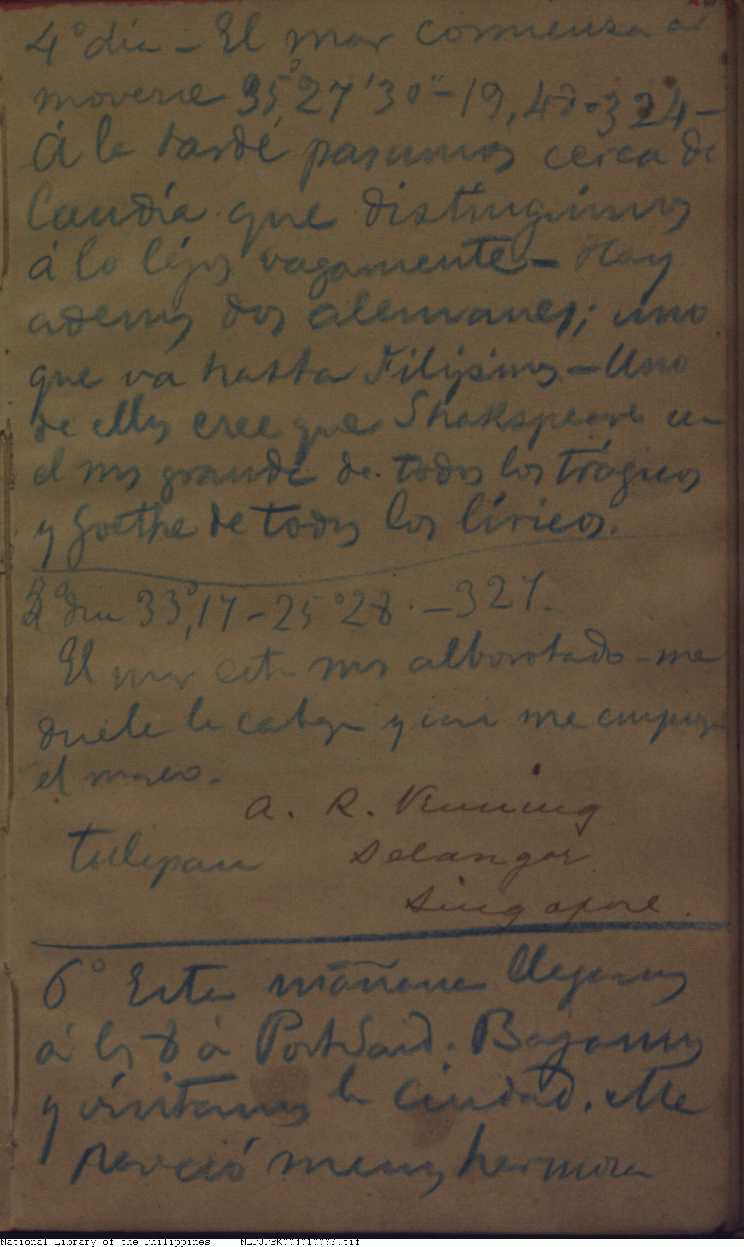 4º día - El mar comienza a
moverse 35º,27'30" - 19,48 - 324 -
Á la tarde pasamos cerca de
Candía que distinguimos
á lo léjos vagamente - Hay
ademas dos alemanes; uno
que va hasta Filipinas - Uno
de ellos cree que Shakspeare es
el mas grande de todos los trágicos
y Goethe de todos los líricos.
5º dia 33º,17 - 25º28 - 327.
El mar está mas alborotado - me
duele la cabeza y casi me empieza
el mareo.
A. R. Venning
tulipan Selangor
Singapore.
6º Esta mañana llegamos
á las 8 á Port Said. Bajamos
y visitamos la ciudad. Me
pareció menos hermosa
National Library of the Philippines